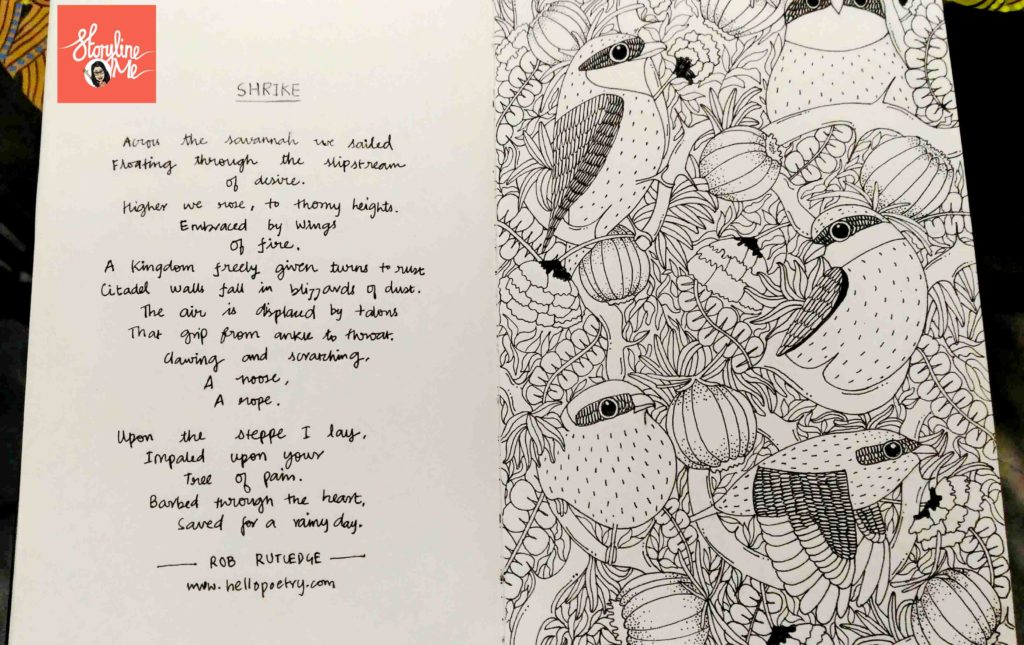 Storyline
Me
SHRIKE
Across the savannah we sailed
Floating through the slipstream
of desire.
Higher we rose, to thorny heights.
Embraced by wings
of fire.
A Kingdom freely given turns to rust
Citadel walls fall in blizzards of dust.
The air is displaced by talons
That grip from ankle to throat.
Clawing and scratching,
A noose,
A rope.
Upon the steppe I lay,
Impaled upon your
Tree of pain.
Barbed through the heart,
Saved for a rainy day.
— ROB RUTLEDGE —
www.hellopoetry.com